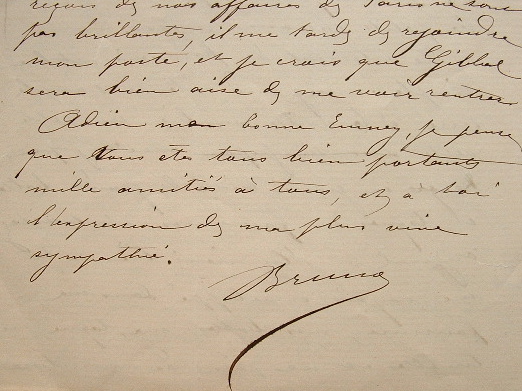 reçois de nos affaires de Paris ne sont
pas brillantes, il me tarde de rejoindre
mon poste, et je crois que
sera bien aise de me voir rentrer
Adieu ma bonne Emney, je pense
que vous etes tous bien portants
mille amitiés à tous, et à toi
l'expression de ma plus vive
sympathie.
Bruno